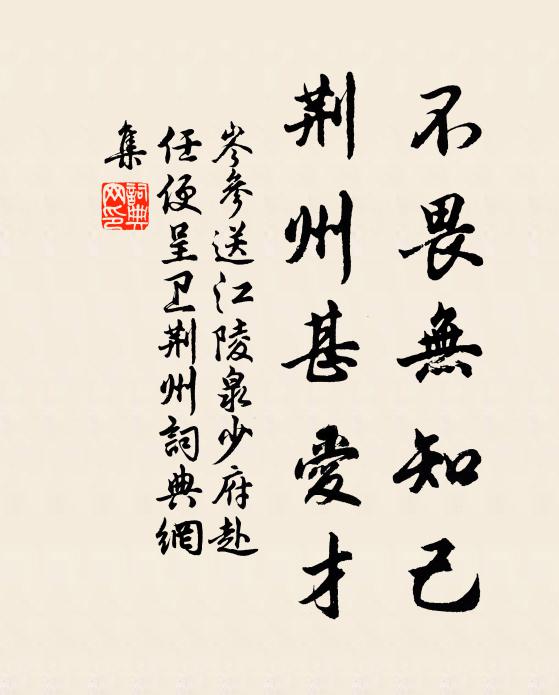 不畏無知己
荆州甚愛才
岑參送江陵泉少府赴
任便呈卫荆州詞典網
集
詞典
网印